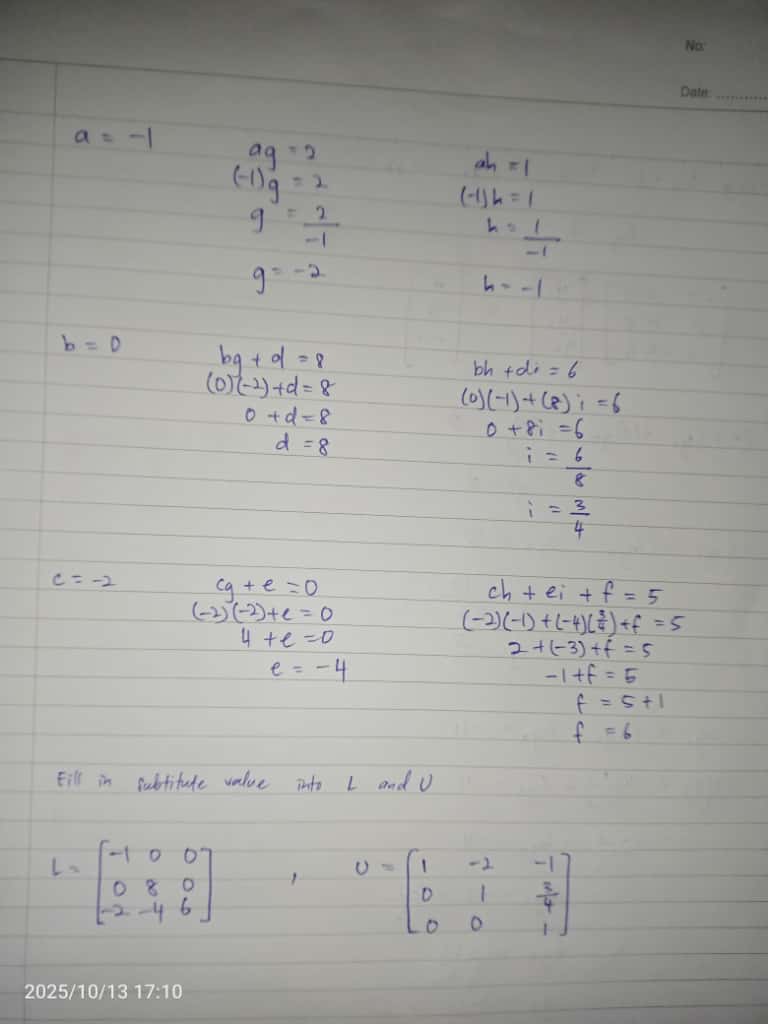 No:
Date: ..........
a = -1
ag = 2
(-1)g = 2
g = 2/-1
g = -2
ah = 1
(-1)h = 1
h = 1/-1
h = -1
b = 0
bg + d = 8
(0)(-2)+d = 8
0 + d = 8
d = 8
bh + di = 6
(0)(-1)+(8)i = 6
0 + 8i = 6
i = 6/8
i = 3/4
c = -2
cg + e = 0
(-2)(-2)+e = 0
4 + e = 0
e = -4
ch + ei + f = 5
(-2)(-1)+(-4)(3/4)+f = 5
2+(-3)+f = 5
-1+f = 5
f = 5+1
f = 6
Fill in subtitute value into L and U
L = [-1 0 0
0 8 0
-2 -4 6] , U = [1 -2 -1
0 1 3/4
0 0 1]
2025/10/13 17:10